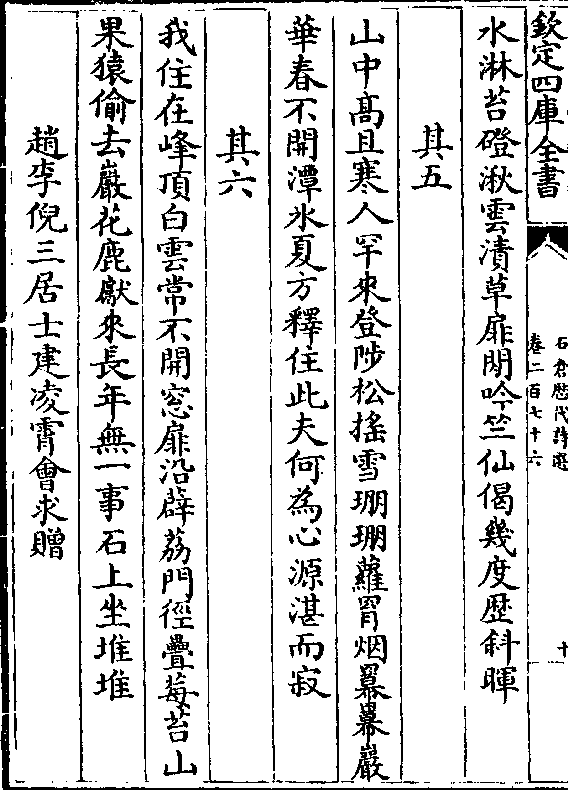 欽定四庫全書
石倉歴代詩選
卷二百七十六
十
水淋苔磴湫雲漬草扉閒吟竺仙偈幾度歴斜暉
其五
山中髙且寒人罕來登陟松揺雪珊珊蘿罥烟羃羃巖
華春不開潭氷夏方釋住此夫何為心源湛而寂
其六
我住在峰頂白雲常不開窓扉沿薜荔門徑疊莓苔山
果猿偷去巖花鹿獻來長年無一事石上坐堆堆
趙李倪三居士建凌霄會求贈